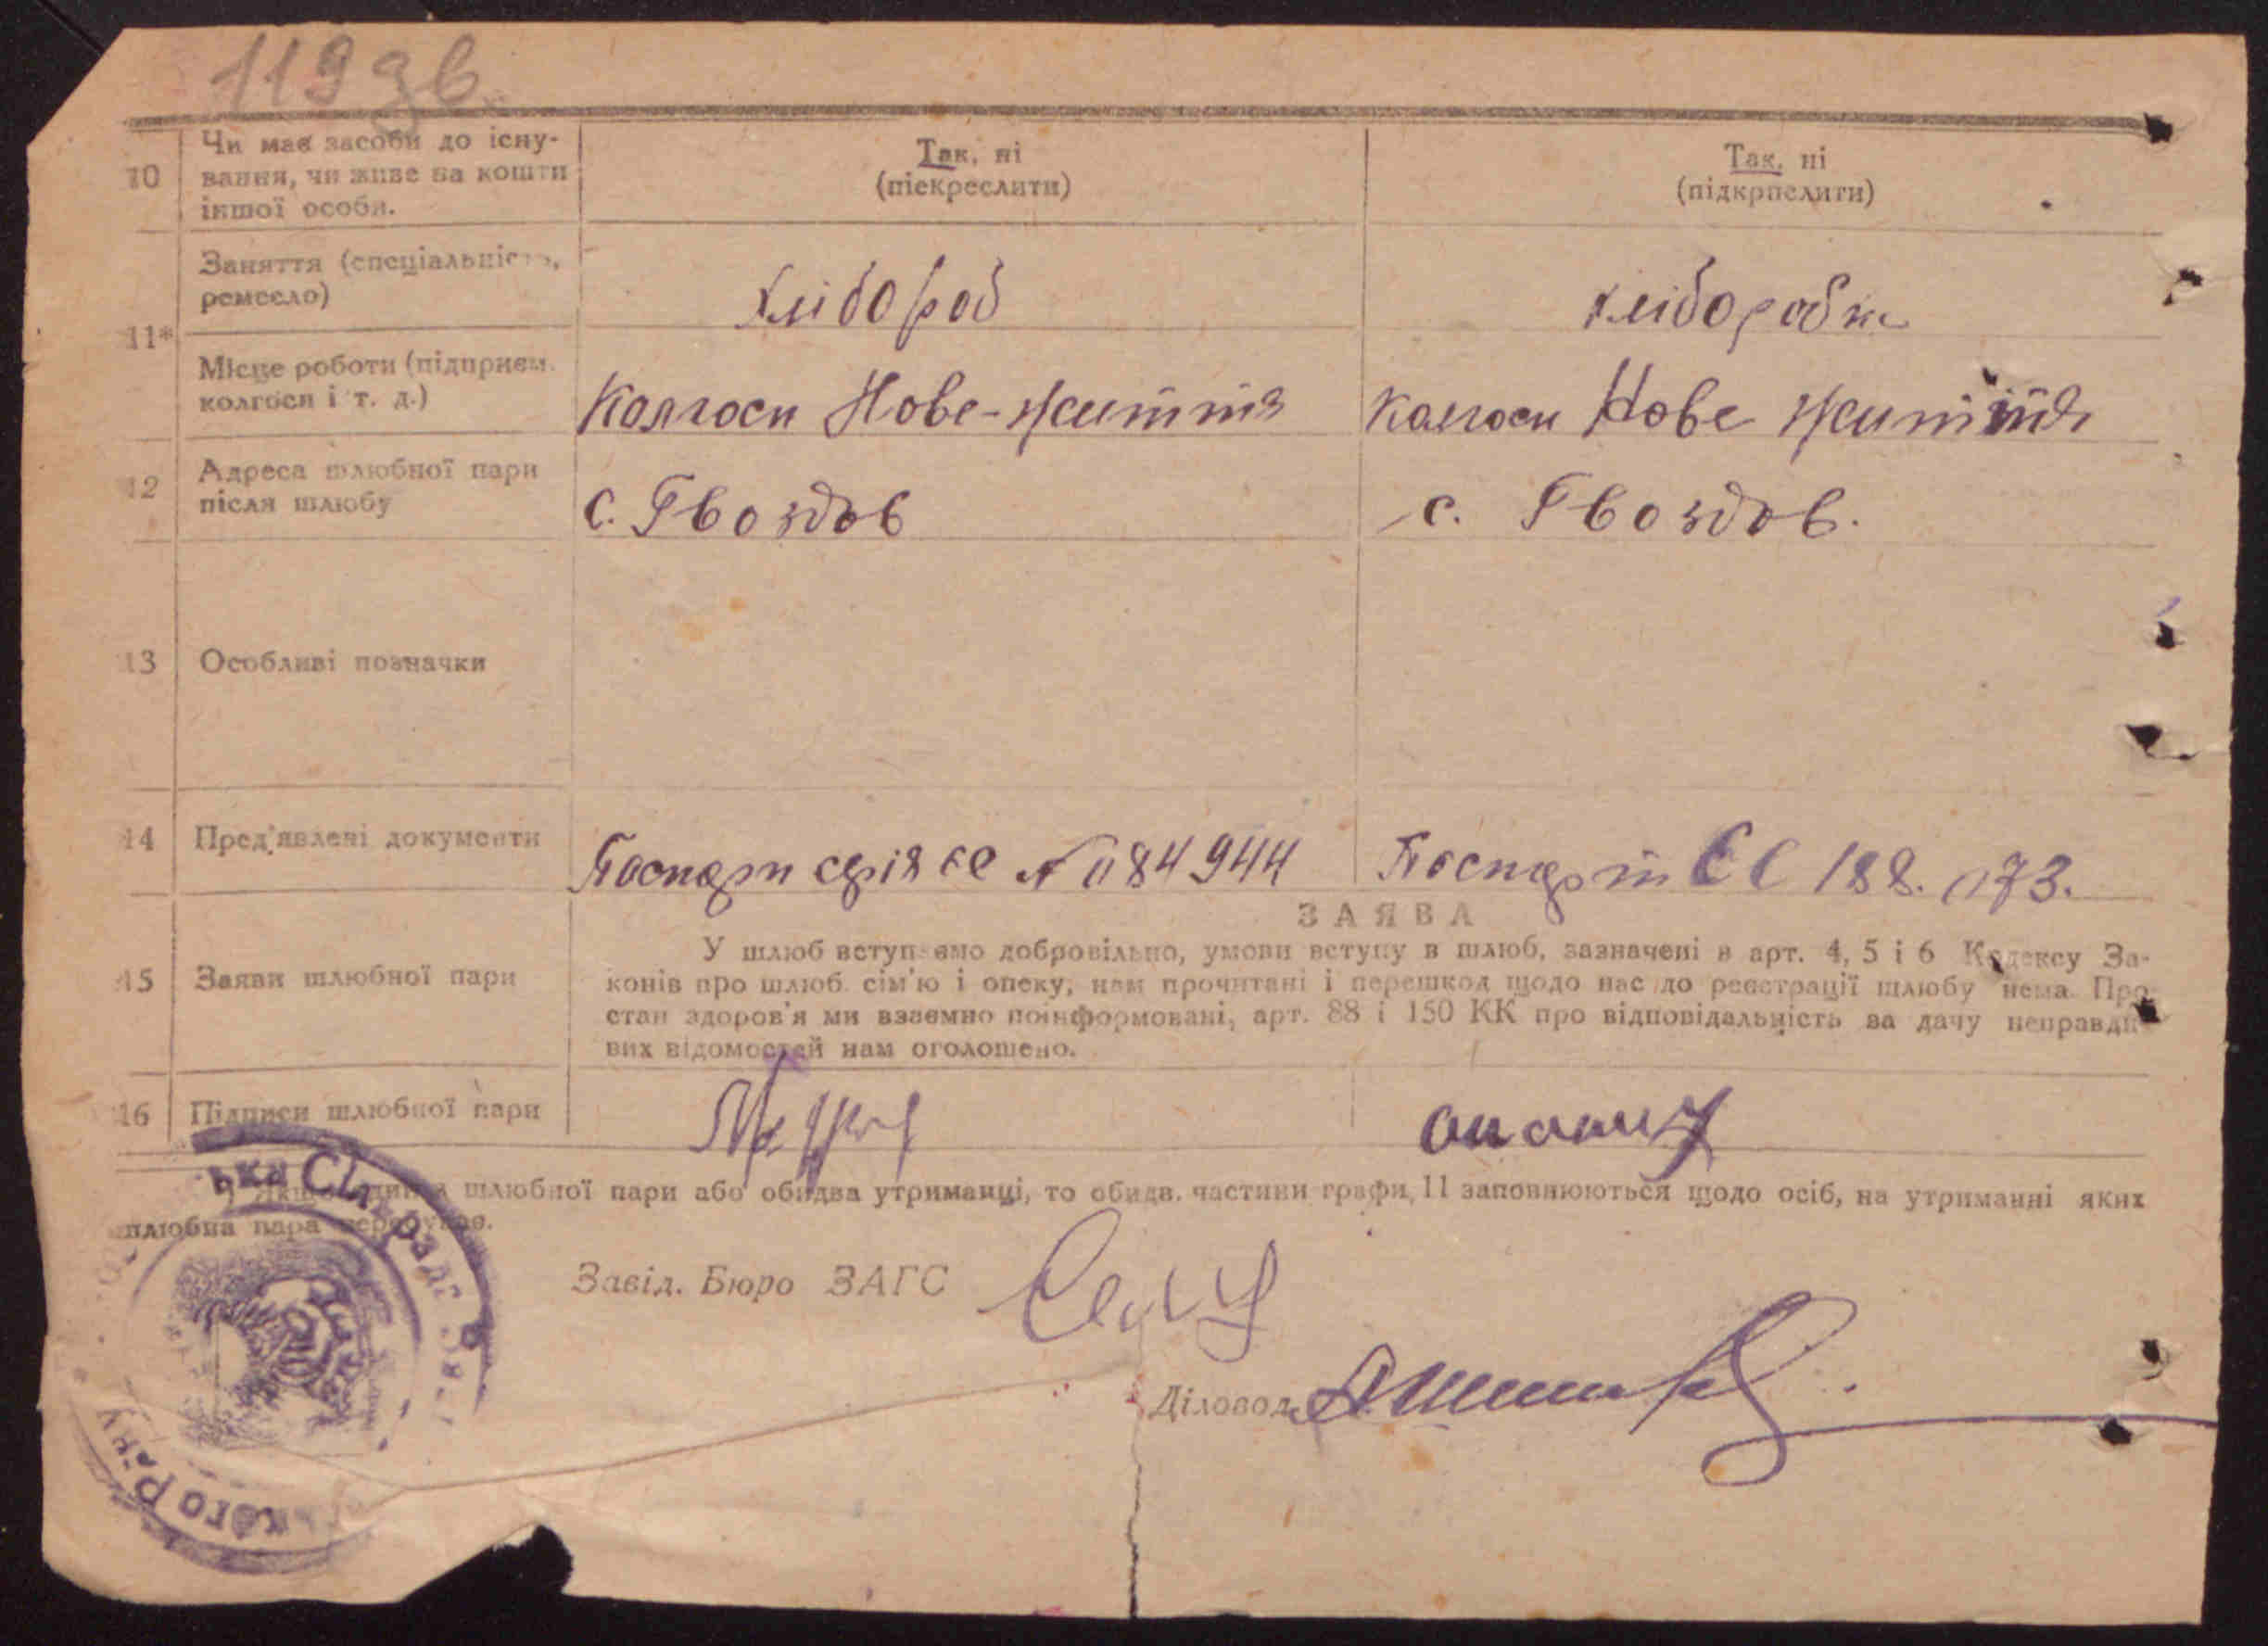 119 зв.
10 Чи має засоби до існу-
вання, чи живе на кошти
іншої особи.
Так, ні
(піекреслити)
Так, ні
(підкрпслити)
11*
Заняття (спеціальність,
ремесло)
хлібороб
хлібороб
Місце роботи (підприєм.
колгосп і т. д.)
Колгосп Нове-життя
Колгосп Нове життя
12 Адреса шлюбної пари
після шлюбу
с. Гвоздов
с. Гвоздов.
13 Особливі позначки
14 Пред'явлені документи
Паспорт серія ЄЄ № 084944
Паспорт ЄЄ 188.073.
ЗАЯВА
15 Заяви шлюбної пари
У шлюб вступаємо добровільно, умови вступу в шлюб, зазначені в арт. 4, 5 і 6 Кодексу За-
конів про шлюб. сім'ю і опеку, нам прочитані і перешкод щодо нас до реєстрації шлюбу нема. Про
стан здоров'я ми взаємно поінформовані, арт. 88 і 150 КК про відповідальність за дачу неправди-
вих відомостей нам оголошено.
16 Підписи шлюбної пари
*) Якщо один з шлюбної пари або обидва утриманці, то обидв. частини графи 11 заповнюються щодо осіб, на утриманні яких
шлюбна пара перебуває.
Завід. Бюро ЗАГС
Діловод